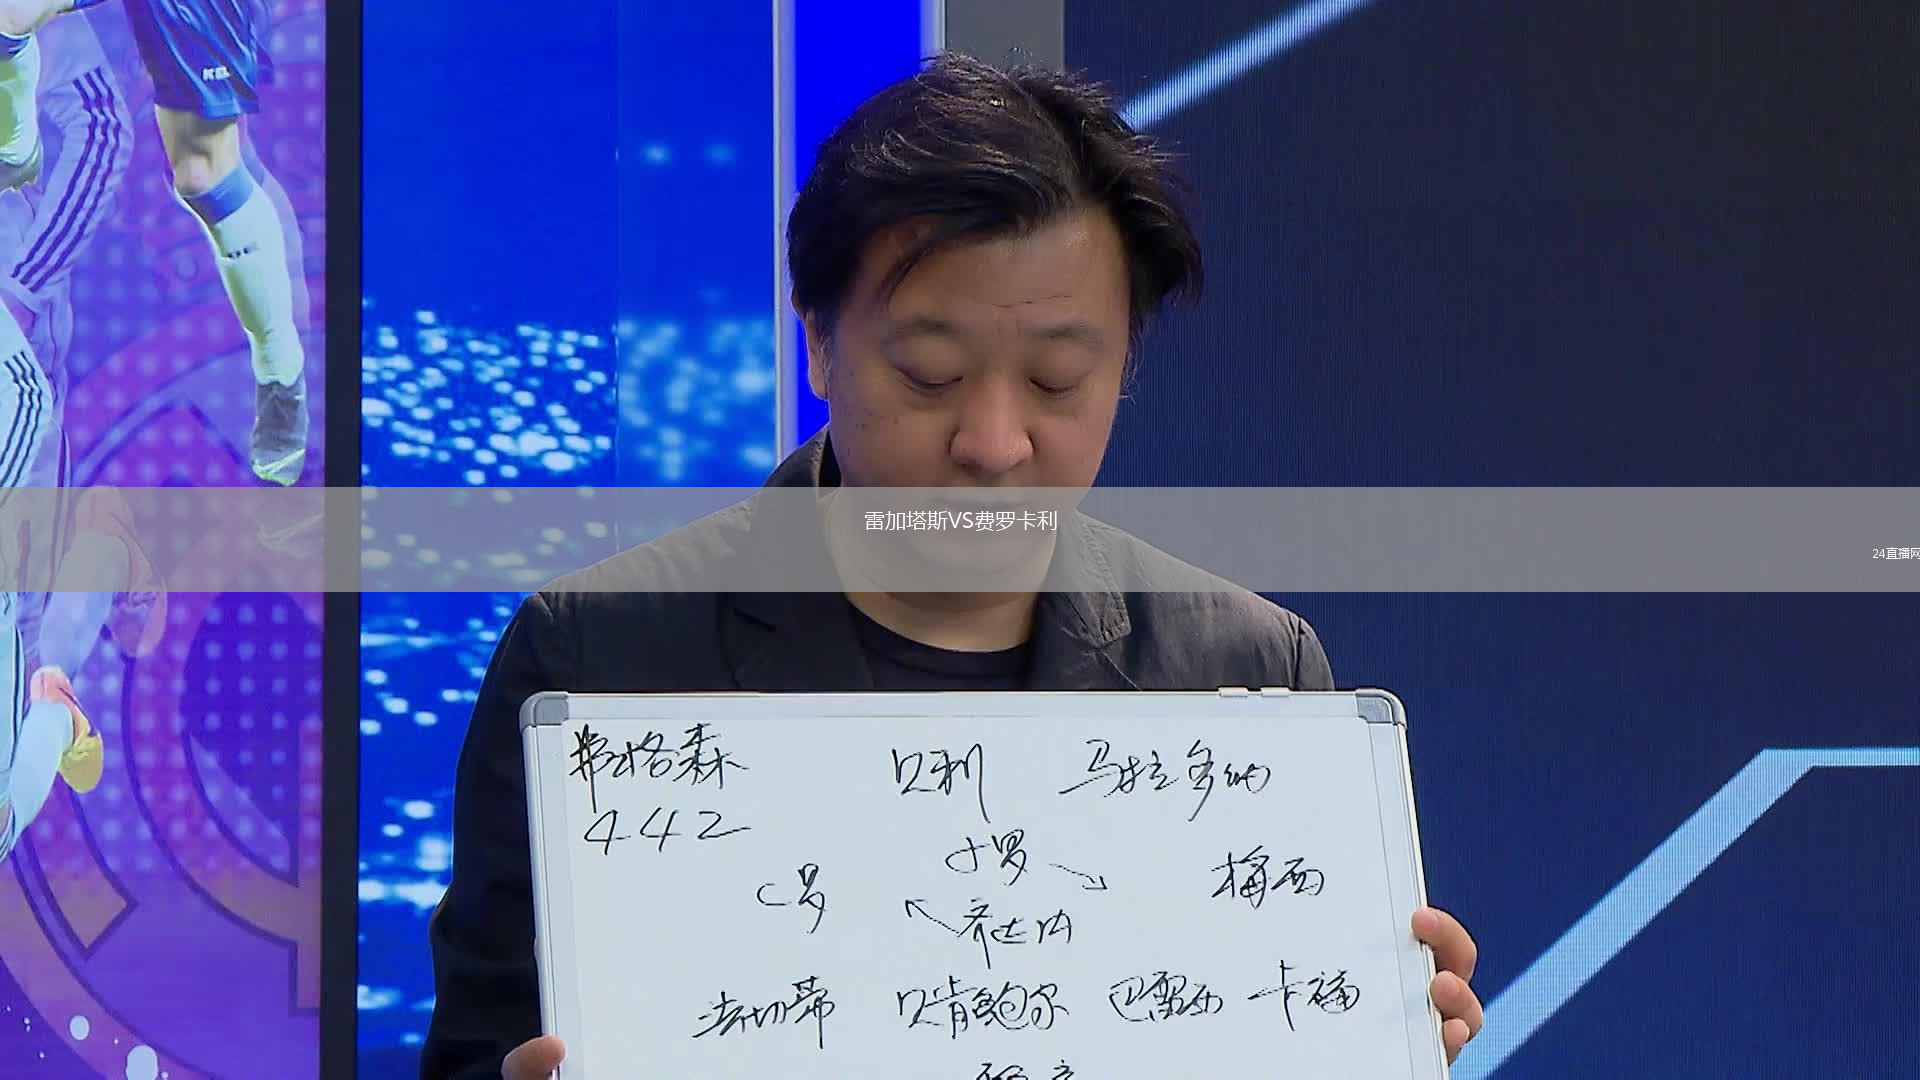 雷加塔斯VS费罗卡利
24直播网
弗格森 贝利 马拉多纳
442
小罗
C罗 梅西
齐达内
法切蒂 贝肯鲍尔 巴雷西 卡福